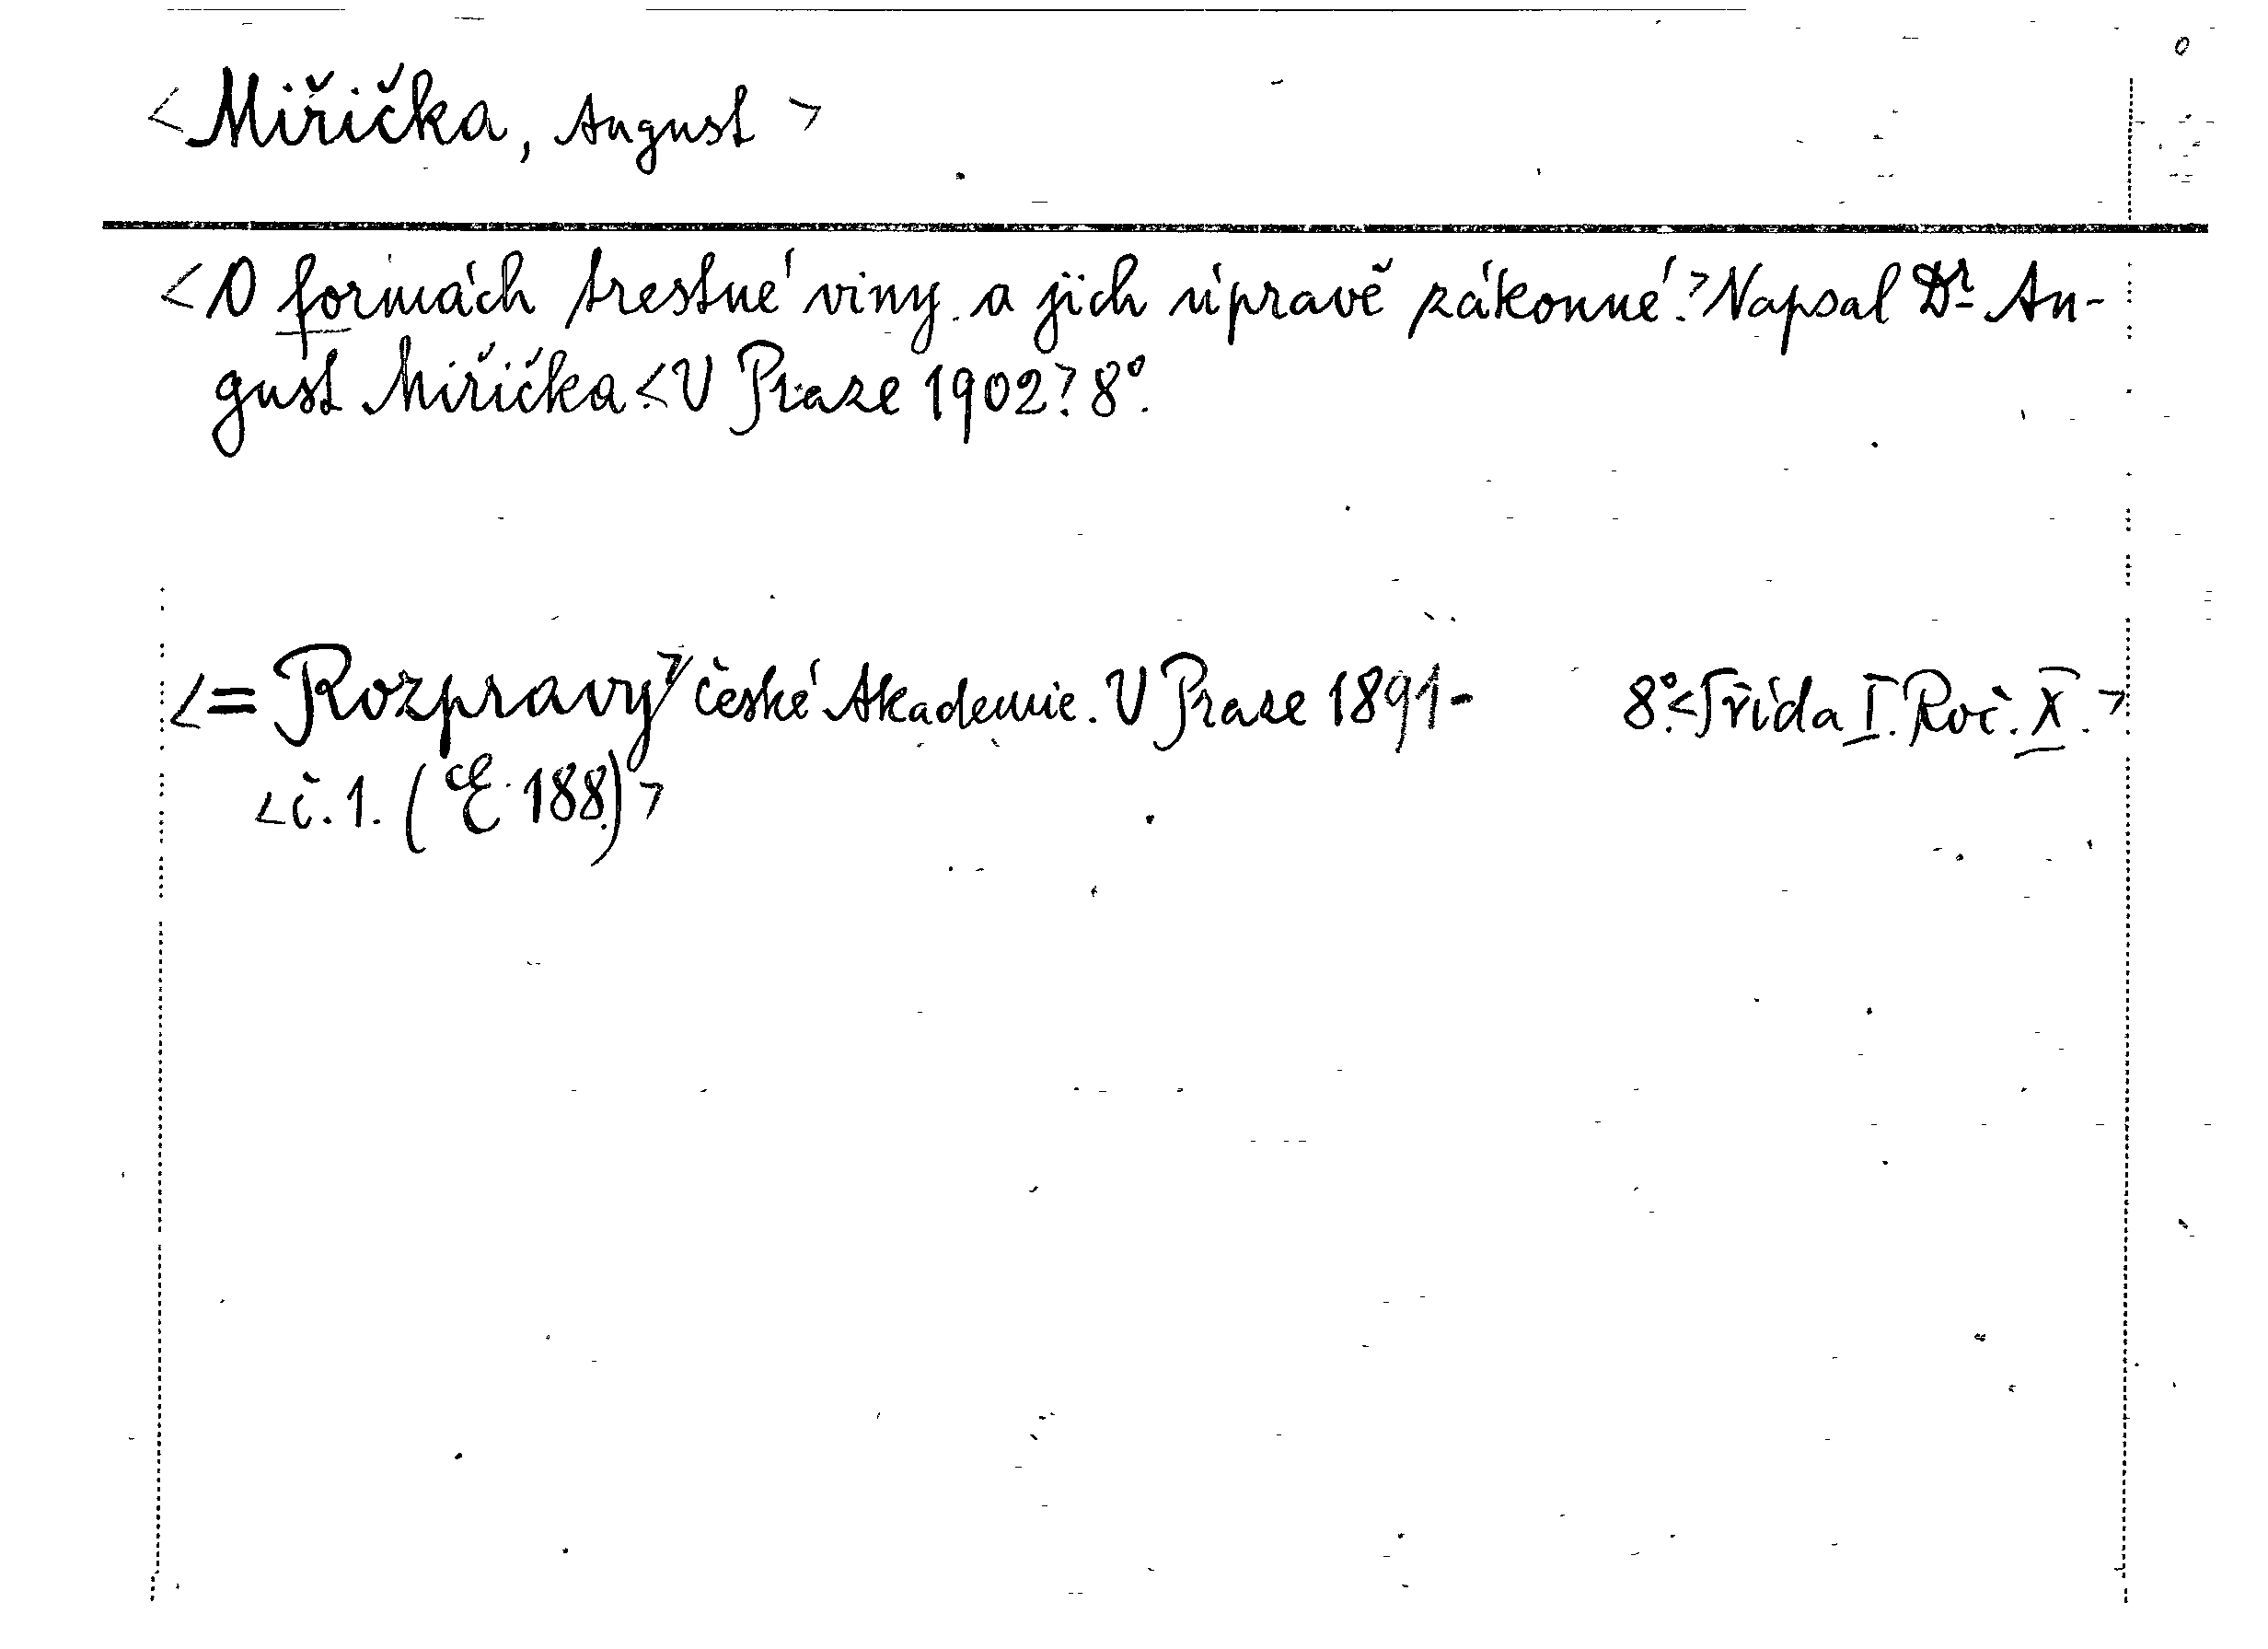 <Miřička, August>
<O formách trestné viny a jich úpravě zákonné.> Napsal Dr. Au-
gust Miřička.<V Praze 1902.> 8°.
<= Rozpravy> české Akademie. V Praze 1891- 8°.<Třída I. Roč. X.>
<č. 1. (E 188.)>